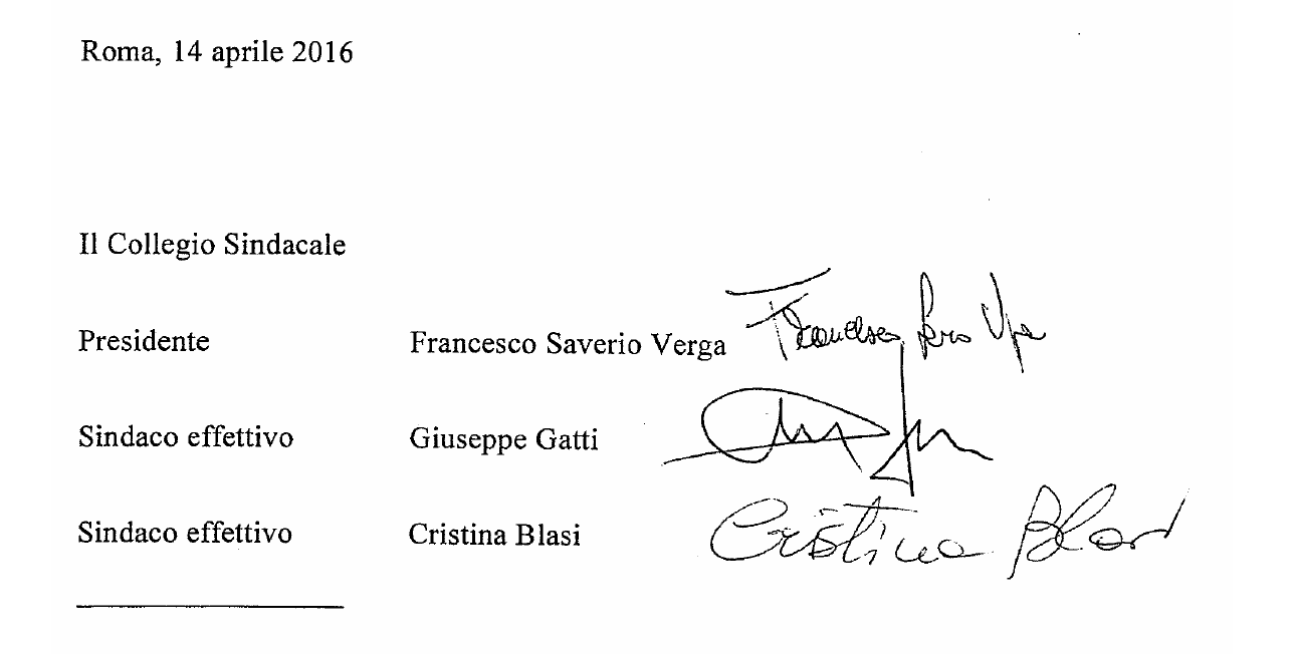 Roma, 14 aprile 2016
Il Collegio Sindacale
Presidente Francesco Saverio Verga
Sindaco effettivo Giuseppe Gatti
Sindaco effettivo Cristina Blasi Cristina Blasi